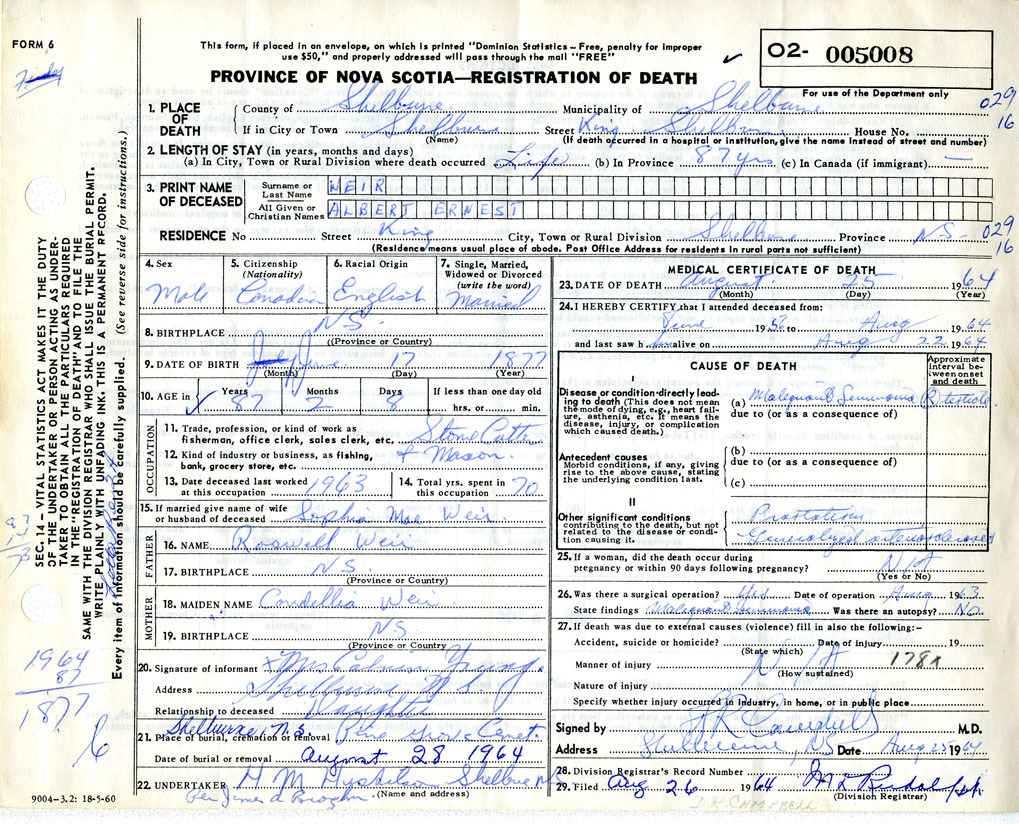 FORM 6
This form, if placed in an envelope, on which is printed "Dominion Statistics – Free, penalty for improper
use $50," and properly addressed will pass through the mail "FREE"
PROVINCE OF NOVA SCOTIA—REGISTRATION OF DEATH
O2- 005008
For use of the Department only
029
16
1. PLACE OF DEATH
County of Shelburne Municipality of Shelburne
If in City or Town Shelburne Street King Shelburne House No.
(Name) (If death occurred in a hospital or institution, give the name instead of street and number)
2. LENGTH OF STAY (in years, months and days)
(a) In City, Town or Rural Division where death occurred Life (b) In Province 87 yrs. (c) In Canada (if immigrant) —
3. PRINT NAME OF DECEASED
Surname or Last Name WEIR
All Given or Christian Names ALBERT ERNEST
RESIDENCE No Street King City, Town or Rural Division Shelburne Province NS- 029
16
(Residence means usual place of abode. Post Office Address for residents in rural parts not sufficient)
4. Sex Male
5. Citizenship (Nationality) Canadian
6. Racial Origin English
7. Single, Married, Widowed or Divorced (write the word) Married
8. BIRTHPLACE NS.
(Province or Country)
9. DATE OF BIRTH July June 17 1877
(Month) (Day) (Year)
10. AGE in Years 87 Months 2 Days 8 If less than one day old hrs. or min.
OCCUPATION
11. Trade, profession, or kind of work as
fisherman, office clerk, sales clerk, etc. Stone Cutter
12. Kind of industry or business, as fishing,
bank, grocery store, etc. + Mason.
13. Date deceased last worked at this occupation 1963
14. Total yrs. spent in this occupation 70
15. If married give name of wife
or husband of deceased Sophia Mae Weir
FATHER
16. NAME Roswell Weir
17. BIRTHPLACE NS.
(Province or Country)
MOTHER
18. MAIDEN NAME Weir
19. BIRTHPLACE NS
(Province or Country)
20. Signature of informant x Mrs
Address Shelburne N S
Relationship to deceased Daughter
Shelburne N.S.
21. Place of burial, cremation or removal Pine Grove Cemet.
Date of burial or removal August 28 1964
22. UNDERTAKER H M Shelburne NS
(Name and address)
Per James
9004-3.2: 18-5-60
MEDICAL CERTIFICATE OF DEATH
23. DATE OF DEATH August 25 1964
(Month) (Day) (Year)
24. I HEREBY CERTIFY that I attended deceased from:
June 19 to Aug 1964
and last saw h alive on Aug 22 1964
CAUSE OF DEATH
Approximate interval between onset and death
I
Disease or condition directly leading to death (This does not mean the mode of dying, e.g., heart failure, asthenia, etc. It means the disease, injury, or complication which caused death.)
(a) Malignant Seminoma R testicle
due to (or as a consequence of)
Antecedent causes
Morbid conditions, if any, giving rise to the above cause, stating the underlying condition last.
(b)
due to (or as a consequence of)
(c)
II
Other significant conditions
contributing to the death, but not related to the disease or condition causing it.
Generalized arteriosclerosis
25. If a woman, did the death occur during
pregnancy or within 90 days following pregnancy? N/A
(Yes or No)
26. Was there a surgical operation? Yes Date of operation Aug 1963
State findings Malignant Seminoma Was there an autopsy? No
27. If death was due to external causes (violence) fill in also the following:–
Accident, suicide or homicide? Date of injury 19
(State which)
Manner of injury N/A 178x
(How sustained)
Nature of injury
Specify whether injury occurred in industry, in home, or in public place
Signed by Campbell M.D.
Address Shelburne, NS Date Aug 25 1964
28. Division Registrar's Record Number
29. Filed Aug 26 1964 Rudolph
(Division Registrar)
D R CAMPBELL
SEC. 14 – VITAL STATISTICS ACT MAKES IT THE DUTY
OF THE UNDERTAKER OR PERSON ACTING AS UNDER-
TAKER TO OBTAIN ALL THE PARTICULARS REQUIRED
IN THE "REGISTRATION OF DEATH" AND TO FILE THE
SAME WITH THE DIVISION REGISTRAR WHO SHALL ISSUE THE BURIAL PERMIT.
WRITE PLAINLY WITH UNFADING INK. THIS IS A PERMANENT RECORD.
Every item of information should be carefully supplied. (See reverse side for instructions.)
1964
87
1877
6